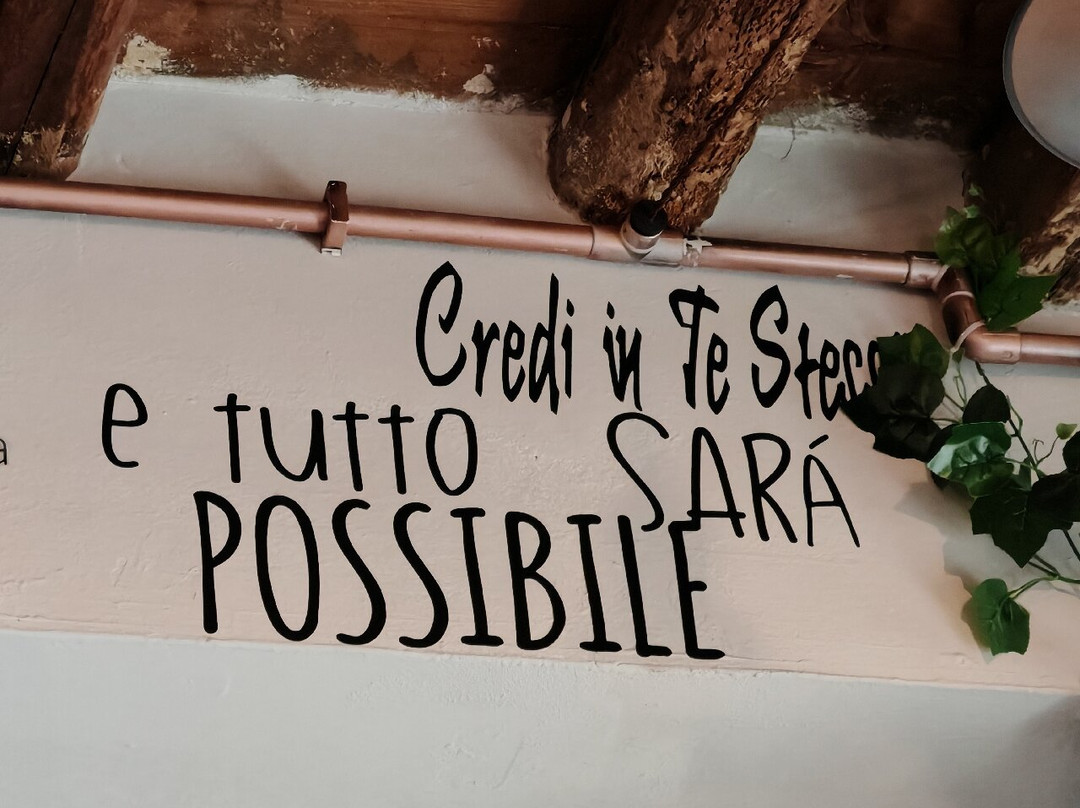 Credi in Te
e tutto SARÁ
POSSIBILE